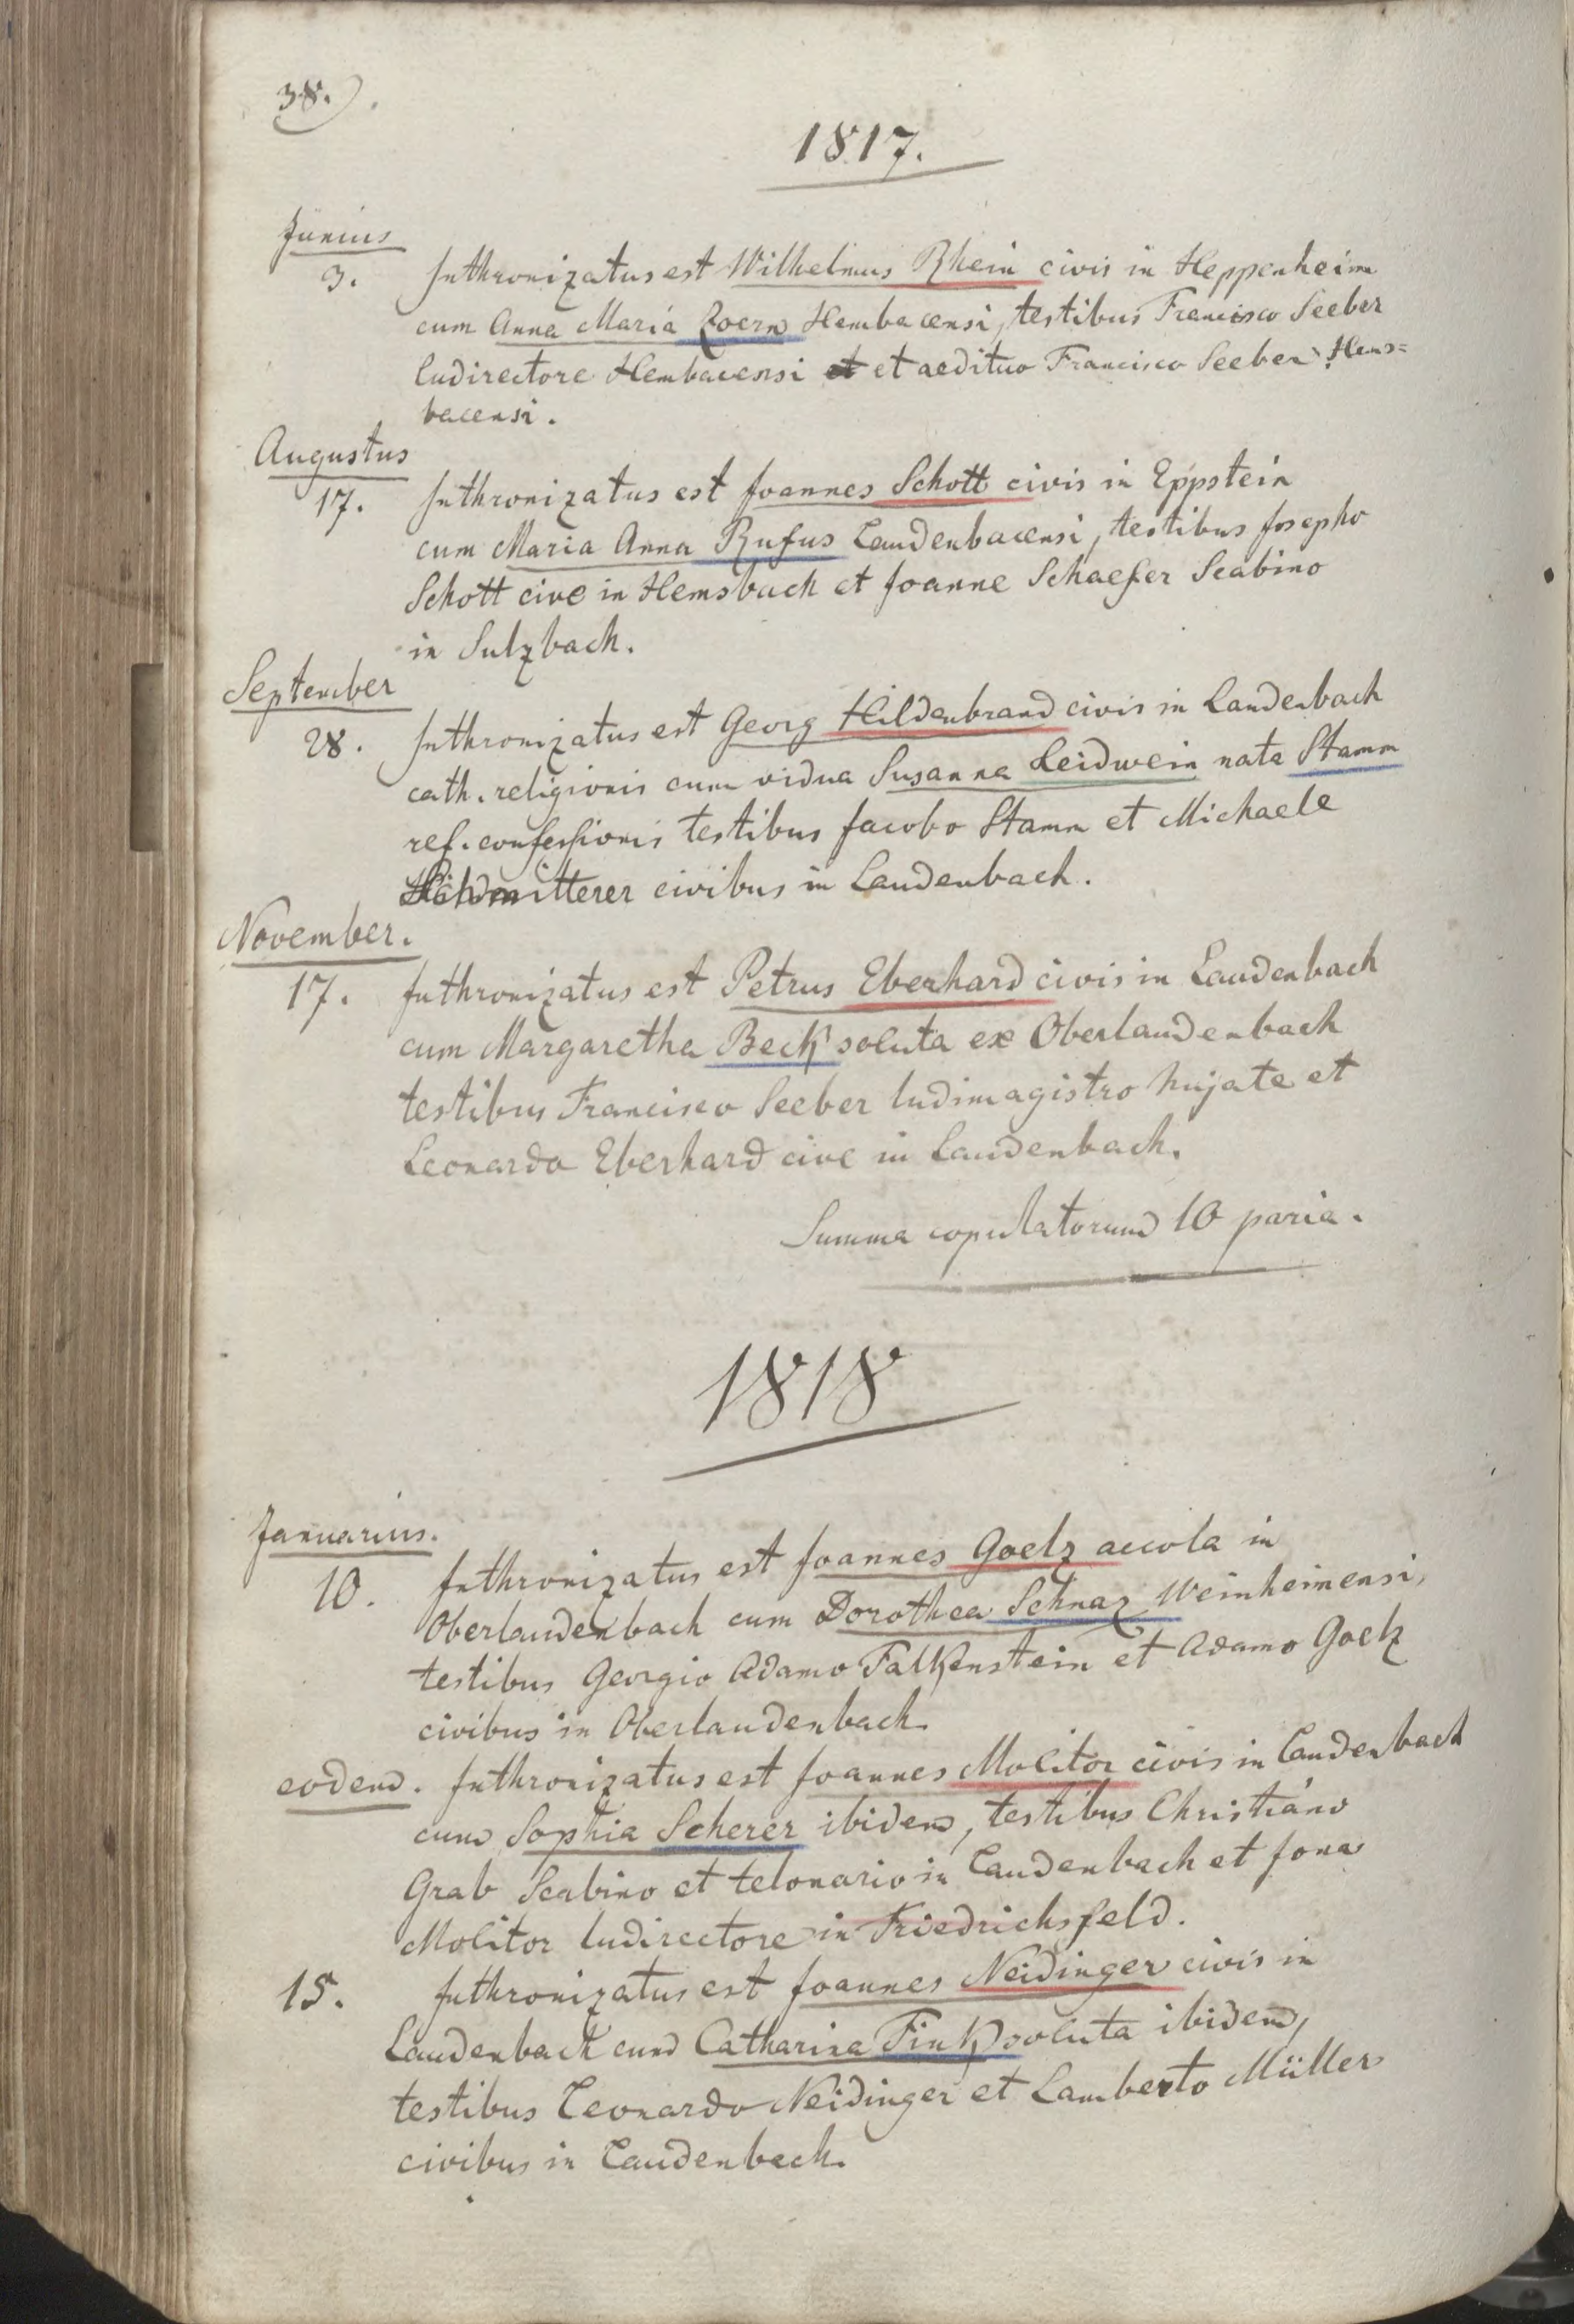 38.
1817.
Junius
3. Inthronizatus est Wilhelmus Rhein civis in Heppenheim
cum Anna Maria Zoern Hembacensi, testibus Francisco Seeber
ludirectore Hembacensi et aedituo Francisco Seeber Hems=
bacensi.
Augustus
17. Inthronizatus est Joannes Schott civis in Eppstein
cum Maria Anna Rufus Laudenbacensi, testibus Josepho
Schott cive in Hemsbach et Joanne Schaefer Scabino
in Sulzbach.
September
28. Inthronizatus est Georg Hildenbrand civis in Laudenbach
cath. religionis cum vidua Susanna Leidwein nata Stamm
ref. confessionis testibus Jacobo Stamm et Michaele
civibus in Laudenbach.
November.
17. Inthronizatus est Petrus Eberhard civis in Laudenbach
cum Margaretha Beck soluta ex Oberlaudenbach
testibus Francisco Seeber ludimagistro hujate et
Leonardo Eberhard cive in Laudenbach.
Summa copulatorum 10 paria.
1818
Januarius.
10. Inthronizatus est Joannes Goelz accola in
Oberlaudenbach cum Dorothea Schnaz Weinheimensi,
testibus Georgio Adamo Falkenstein et Adamo Goelz
civibus in Oberlaudenbach.
eodem. Inthronizatus est Joannes Molitor civis in Laudenbach
cum Sophia Scherer ibidem, testibus Christiano
Grab Scabino et telonario in Laudenbach et Jona
Molitor ludirectore in Friedrichsfeld.
15. Inthronizatus est Joannes Neidinger civis in
Laudenbach cum Catharina Fink soluta ibidem,
testibus Leonardo Neidinger et Lamberto Müller
civibus in Laudenbach.